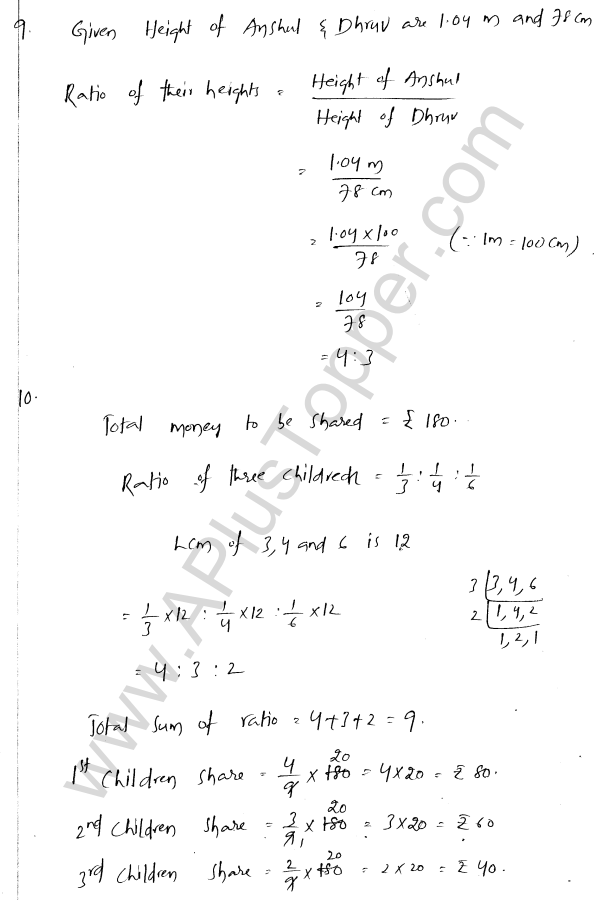 9. Given Height of Anshul & Dhruv are 1.04 m and 78 cm
Ratio of their heights = Height of Anshul / Height of Dhruv
= 1.04 m / 78 cm
= 1.04 × 100 / 78 (∵ 1m = 100 cm)
= 104 / 78
= 4 : 3
10.
Total money to be shared = ₹ 180.
Ratio of three children = 1/3 : 1/4 : 1/6
Lcm of 3, 4 and 6 is 12
3 | 3, 4, 6
2 | 1, 4, 2
1, 2, 1
= 1/3 × 12 : 1/4 × 12 : 1/6 × 12
= 4 : 3 : 2
Total sum of ratio = 4+3+2 = 9.
1st Children share = 4/9 × 180 20 = 4 × 20 = ₹ 80.
2nd Children share = 3/9 1 × 180 20 = 3 × 20 = ₹ 60
3rd Children share = 2/9 × 180 20 = 2 × 20 = ₹ 40.
www.APlusTopper.com